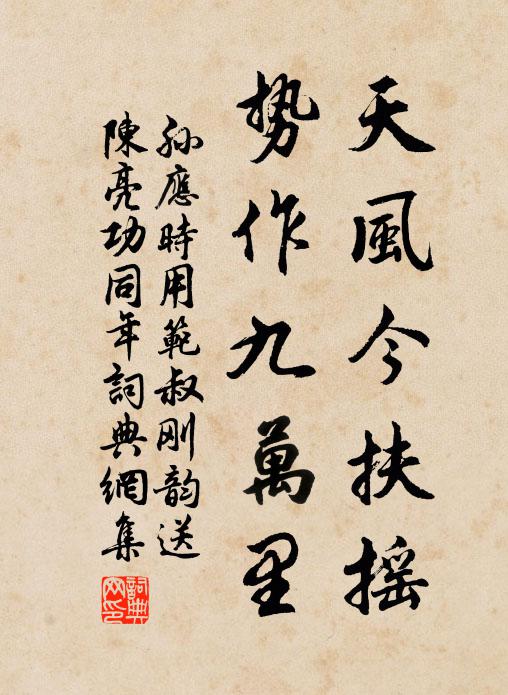 天風今扶摇
势作九萬里
孙應時用範叔刚韵送
陳亮功同年詞典網集
詞典网印